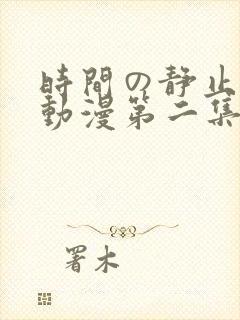 時間の静止
動漫第二集
署木